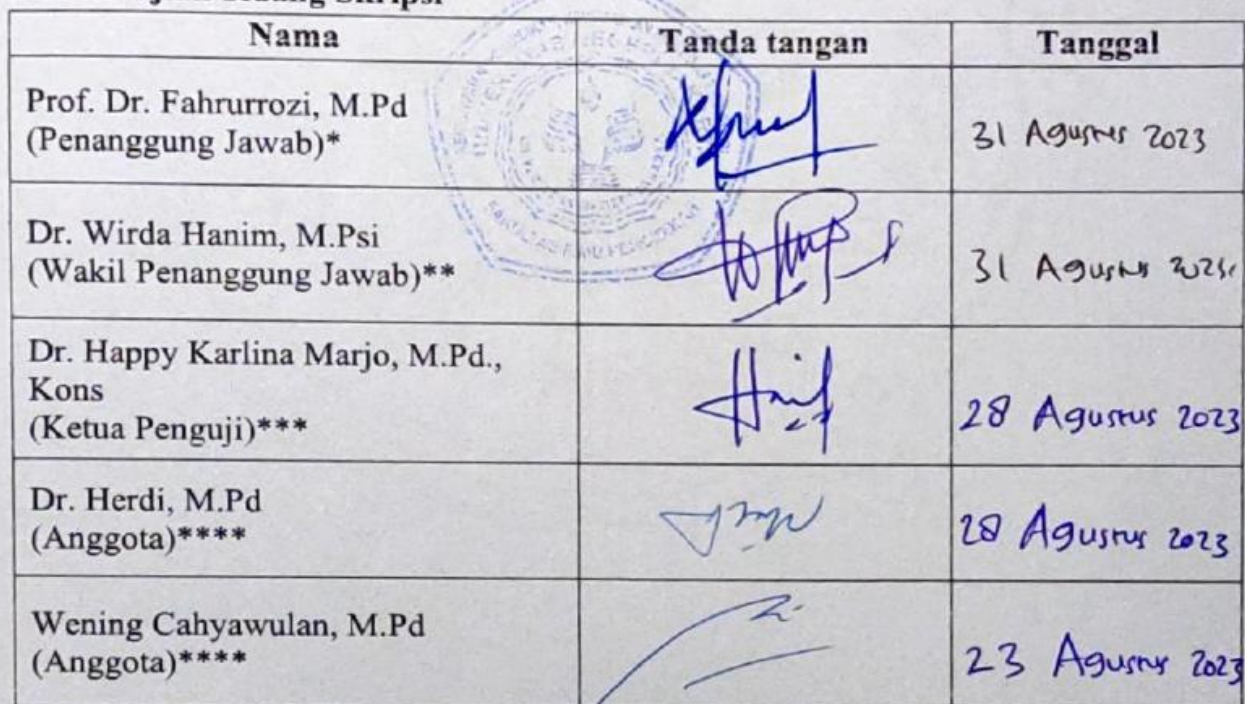 Sidang Skripsi
Nama Tanda tangan Tanggal
Prof. Dr. Fahrurrozi, M.Pd
(Penanggung Jawab)*
31 Agustus 2023
Dr. Wirda Hanim, M.Psi
(Wakil Penanggung Jawab)**
31 Agustus 2023
Dr. Happy Karlina Marjo, M.Pd.,
Kons
(Ketua Penguji)***
28 Agustus 2023
Dr. Herdi, M.Pd
(Anggota)****
28 Agustus 2023
Wening Cahyawulan, M.Pd
(Anggota)****
23 Agustus 2023